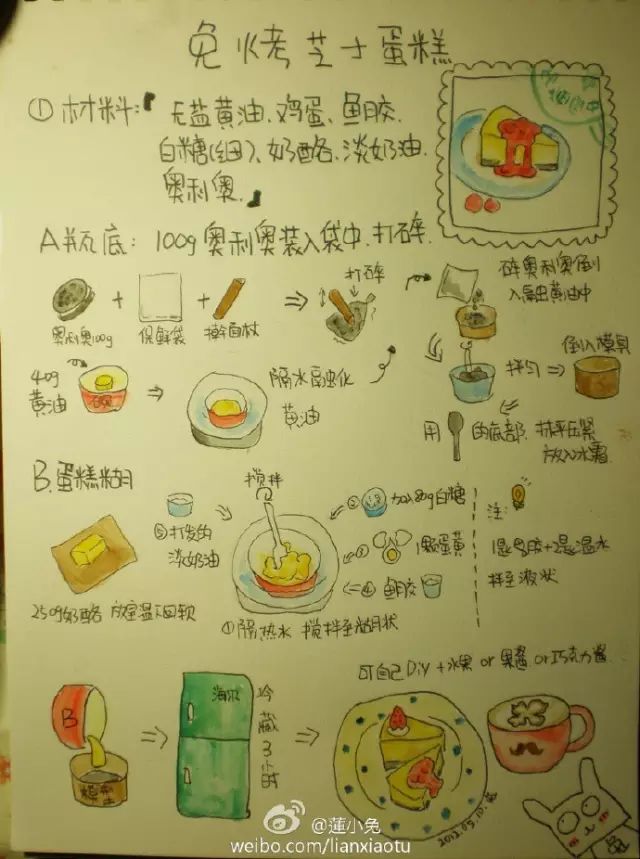 免烤芝士蛋糕
① 材料: 无盐黄油、鸡蛋、鱼胶、
白糖(细)、奶酪、淡奶油、
奥利奥。
A瓶底: 100g奥利奥装入袋中,打碎.
奥利奥100g
+
保鲜袋
+
擀面杖
打碎
碎奥利奥倒
入融虫黄油中
40g
黄油
隔水融虫化
黄油
拌匀
倒入模具
用
的底部,抹平压紧
放入冰霜
B.蛋糕糊
搅拌
⑤打发的
淡奶油
② 加入80g白糖
③ 1颗蛋黄
④ 鱼胶
注:
1匙鱼胶+2匙温水
拌至液状
250g奶酪 放室温下回软
①隔热水 搅拌至糊状
可自己DiY+水果 or 果酱 or 巧克力酱
B
海尔
冷藏3小时
2012.05.10.
@蓮小兔
weibo.com/lianxiaotu